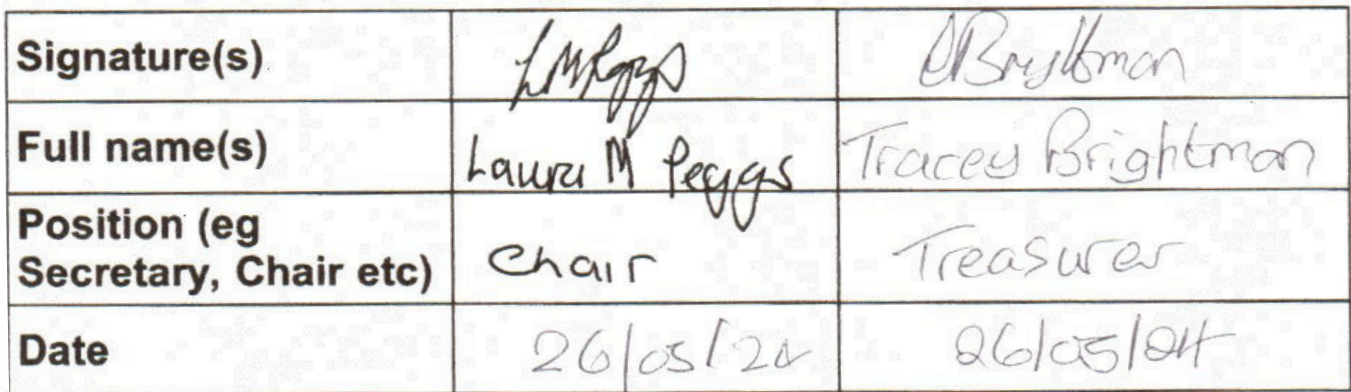 Signature(s) LMPeggs Brightman
Full name(s) Laura M Peggs Tracey Brightman
Position (eg
Secretary, Chair etc) Chair Treasurer
Date 26/05/24 26/05/24